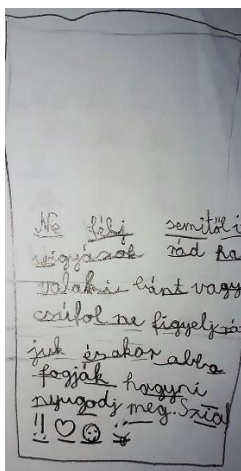 Ne félj semitől i
vigyázok rád ha
valaki bánt vagy
csúfol ne figyelj rá
juk ésakor abba
fogják hagyni
nyugodj meg. Szia
!! ♡ ☺